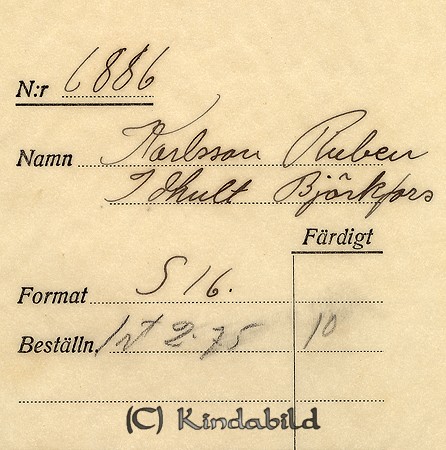 N:r 6886
Namn Karlsson Ruben
Idhult Björkfors
Färdigt
Format S 16.
Beställn. 1 st 2.75 10
(C) Kindabild